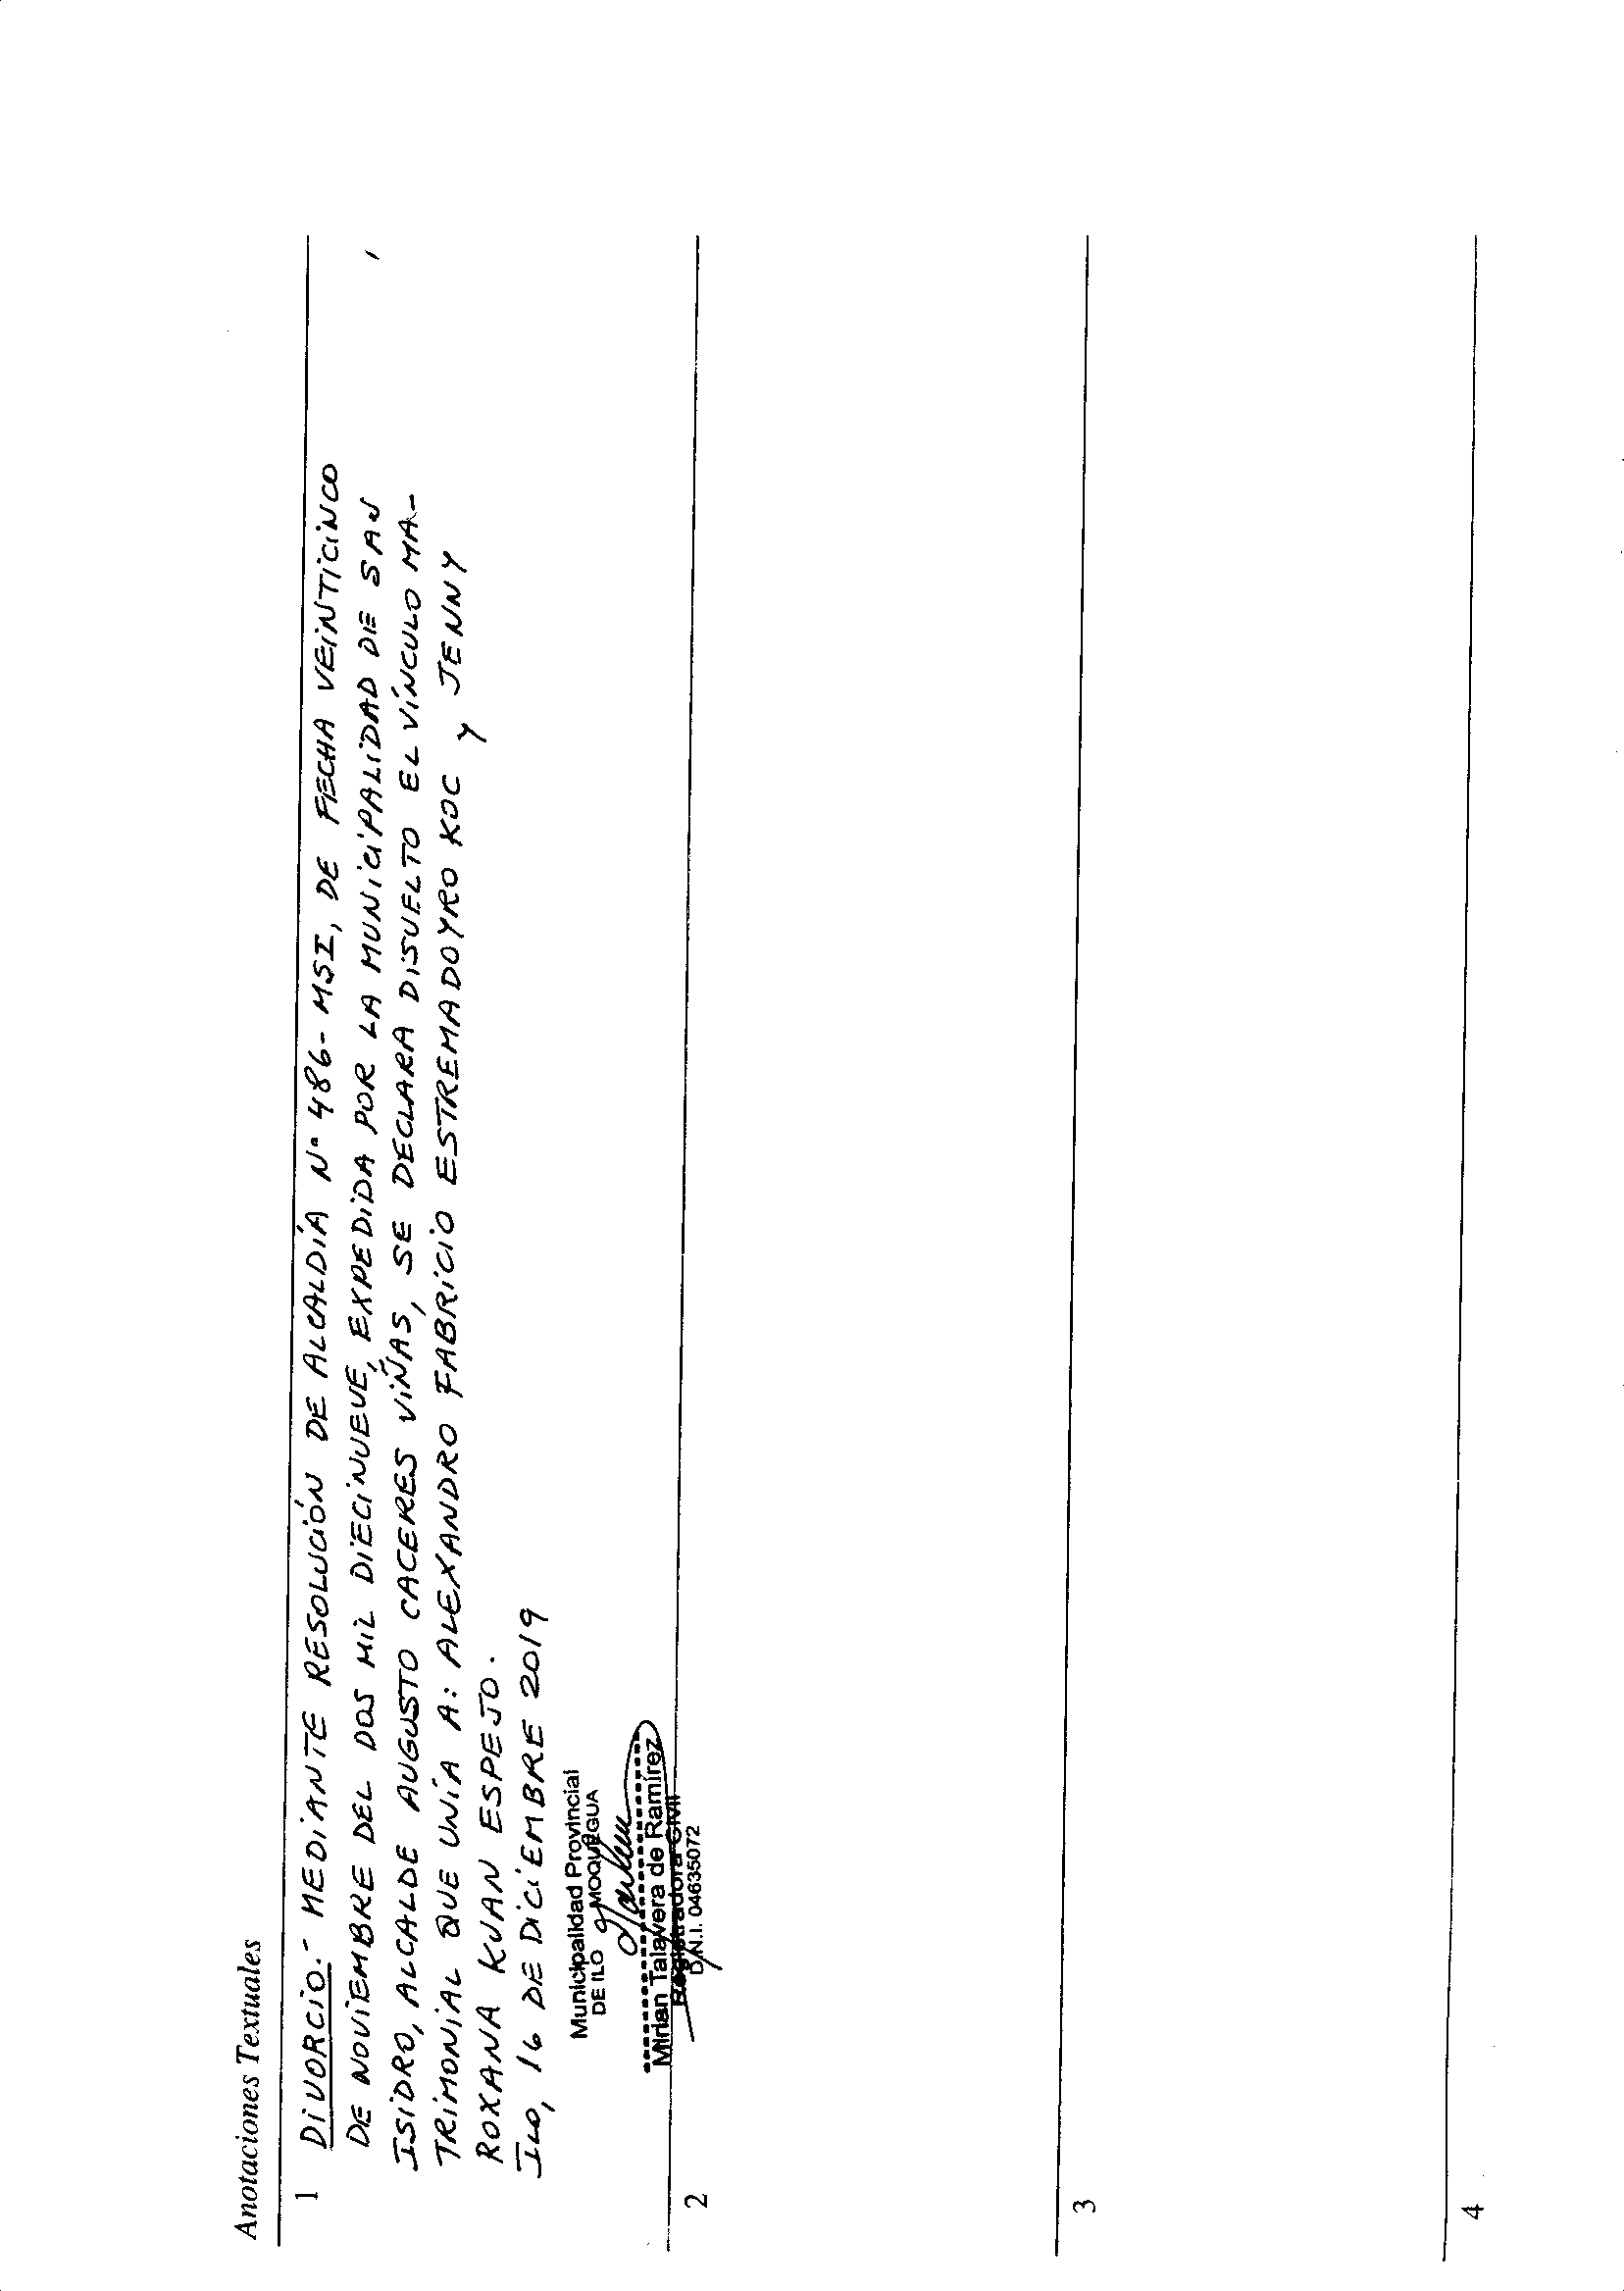 Anotaciones Textuales
1 DIVORCIO.- MEDIANTE RESOLUCIÓN DE ALCALDÍA N° 486-MSI, DE FECHA VEINTICINCO
DE NOVIEMBRE DEL DOS MIL DIECINUEVE, EXPEDIDA POR LA MUNICIPALIDAD DE SAN
ISIDRO, ALCALDE AUGUSTO CACERES VIÑAS, SE DECLARA DISUELTO EL VÍNCULO MA-
TRIMONIAL QUE UNÍA A: ALEXANDRO FABRICIO ESTREMADOYRO KOC Y JENNY
ROXANA KUAN ESPEJO.
ILO, 16 DE DICIEMBRE 2019
Municipalidad Provincial
DE ILO MOQUEGUA
Mirian Talavera de Ramírez
Registradora Civil
D.N.I. 04635072
2
3
4